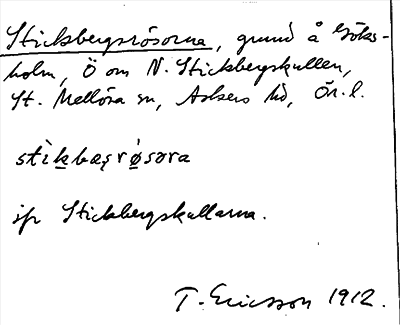 Stickbergsrösorna, grund å Göks-
holm, Ö om N. Stickbergskullen,
St. Mellösa sn, Askers hd, Ör. l.
stìkbæȥrøsora
jfr Stickbergskullarna.
T. Ericsson 1912.